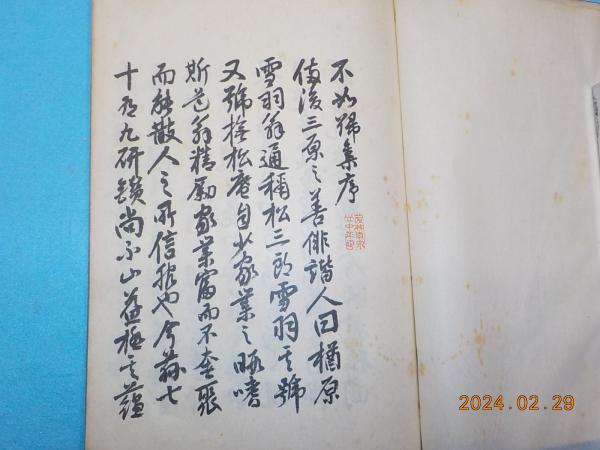 不如歸集序
備後三原之善俳諧人曰楢原
雪羽翁通稱松三郎雪羽其號
又號松庵自少家業之暇嗜
斯道翁精勵家業富而不奢聚
而能散人之所信服也今茲七
十有九研鑽尚不止益極其蘊
2024.02.29